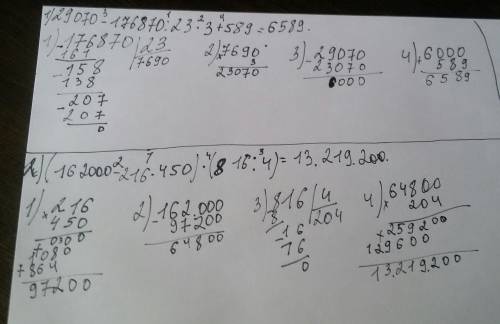 1) 29070 - 176870 : 23 · 3 + 589 = 6589.
3 1 2 4
1) 176870 | 23
- 161 7690
- 158
138
- 207
207
0
2) 7690
× 3
23070
3) - 29070
23070
6000
4) + 6000
589
6589
2) (162000 - 216 · 450) · (816 : 4) = 13.219.200.
2 1 4 3
1) × 216
450
000
1080
+ 864
97200
2) - 162.000
97200
64800
3) 816 | 4
8 204
- 16
16
0
4) × 64800
204
259200
129600
13.219.200